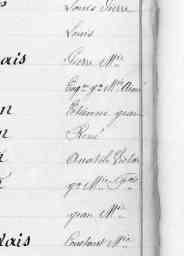 Louis Pierre
Louis
ais Pierre Mie
Eug. gd Mie Aimé
n Etienne Jean
n René
Anatole Victor
gd Mie Fois
Jean Mie
lais Constant Mie